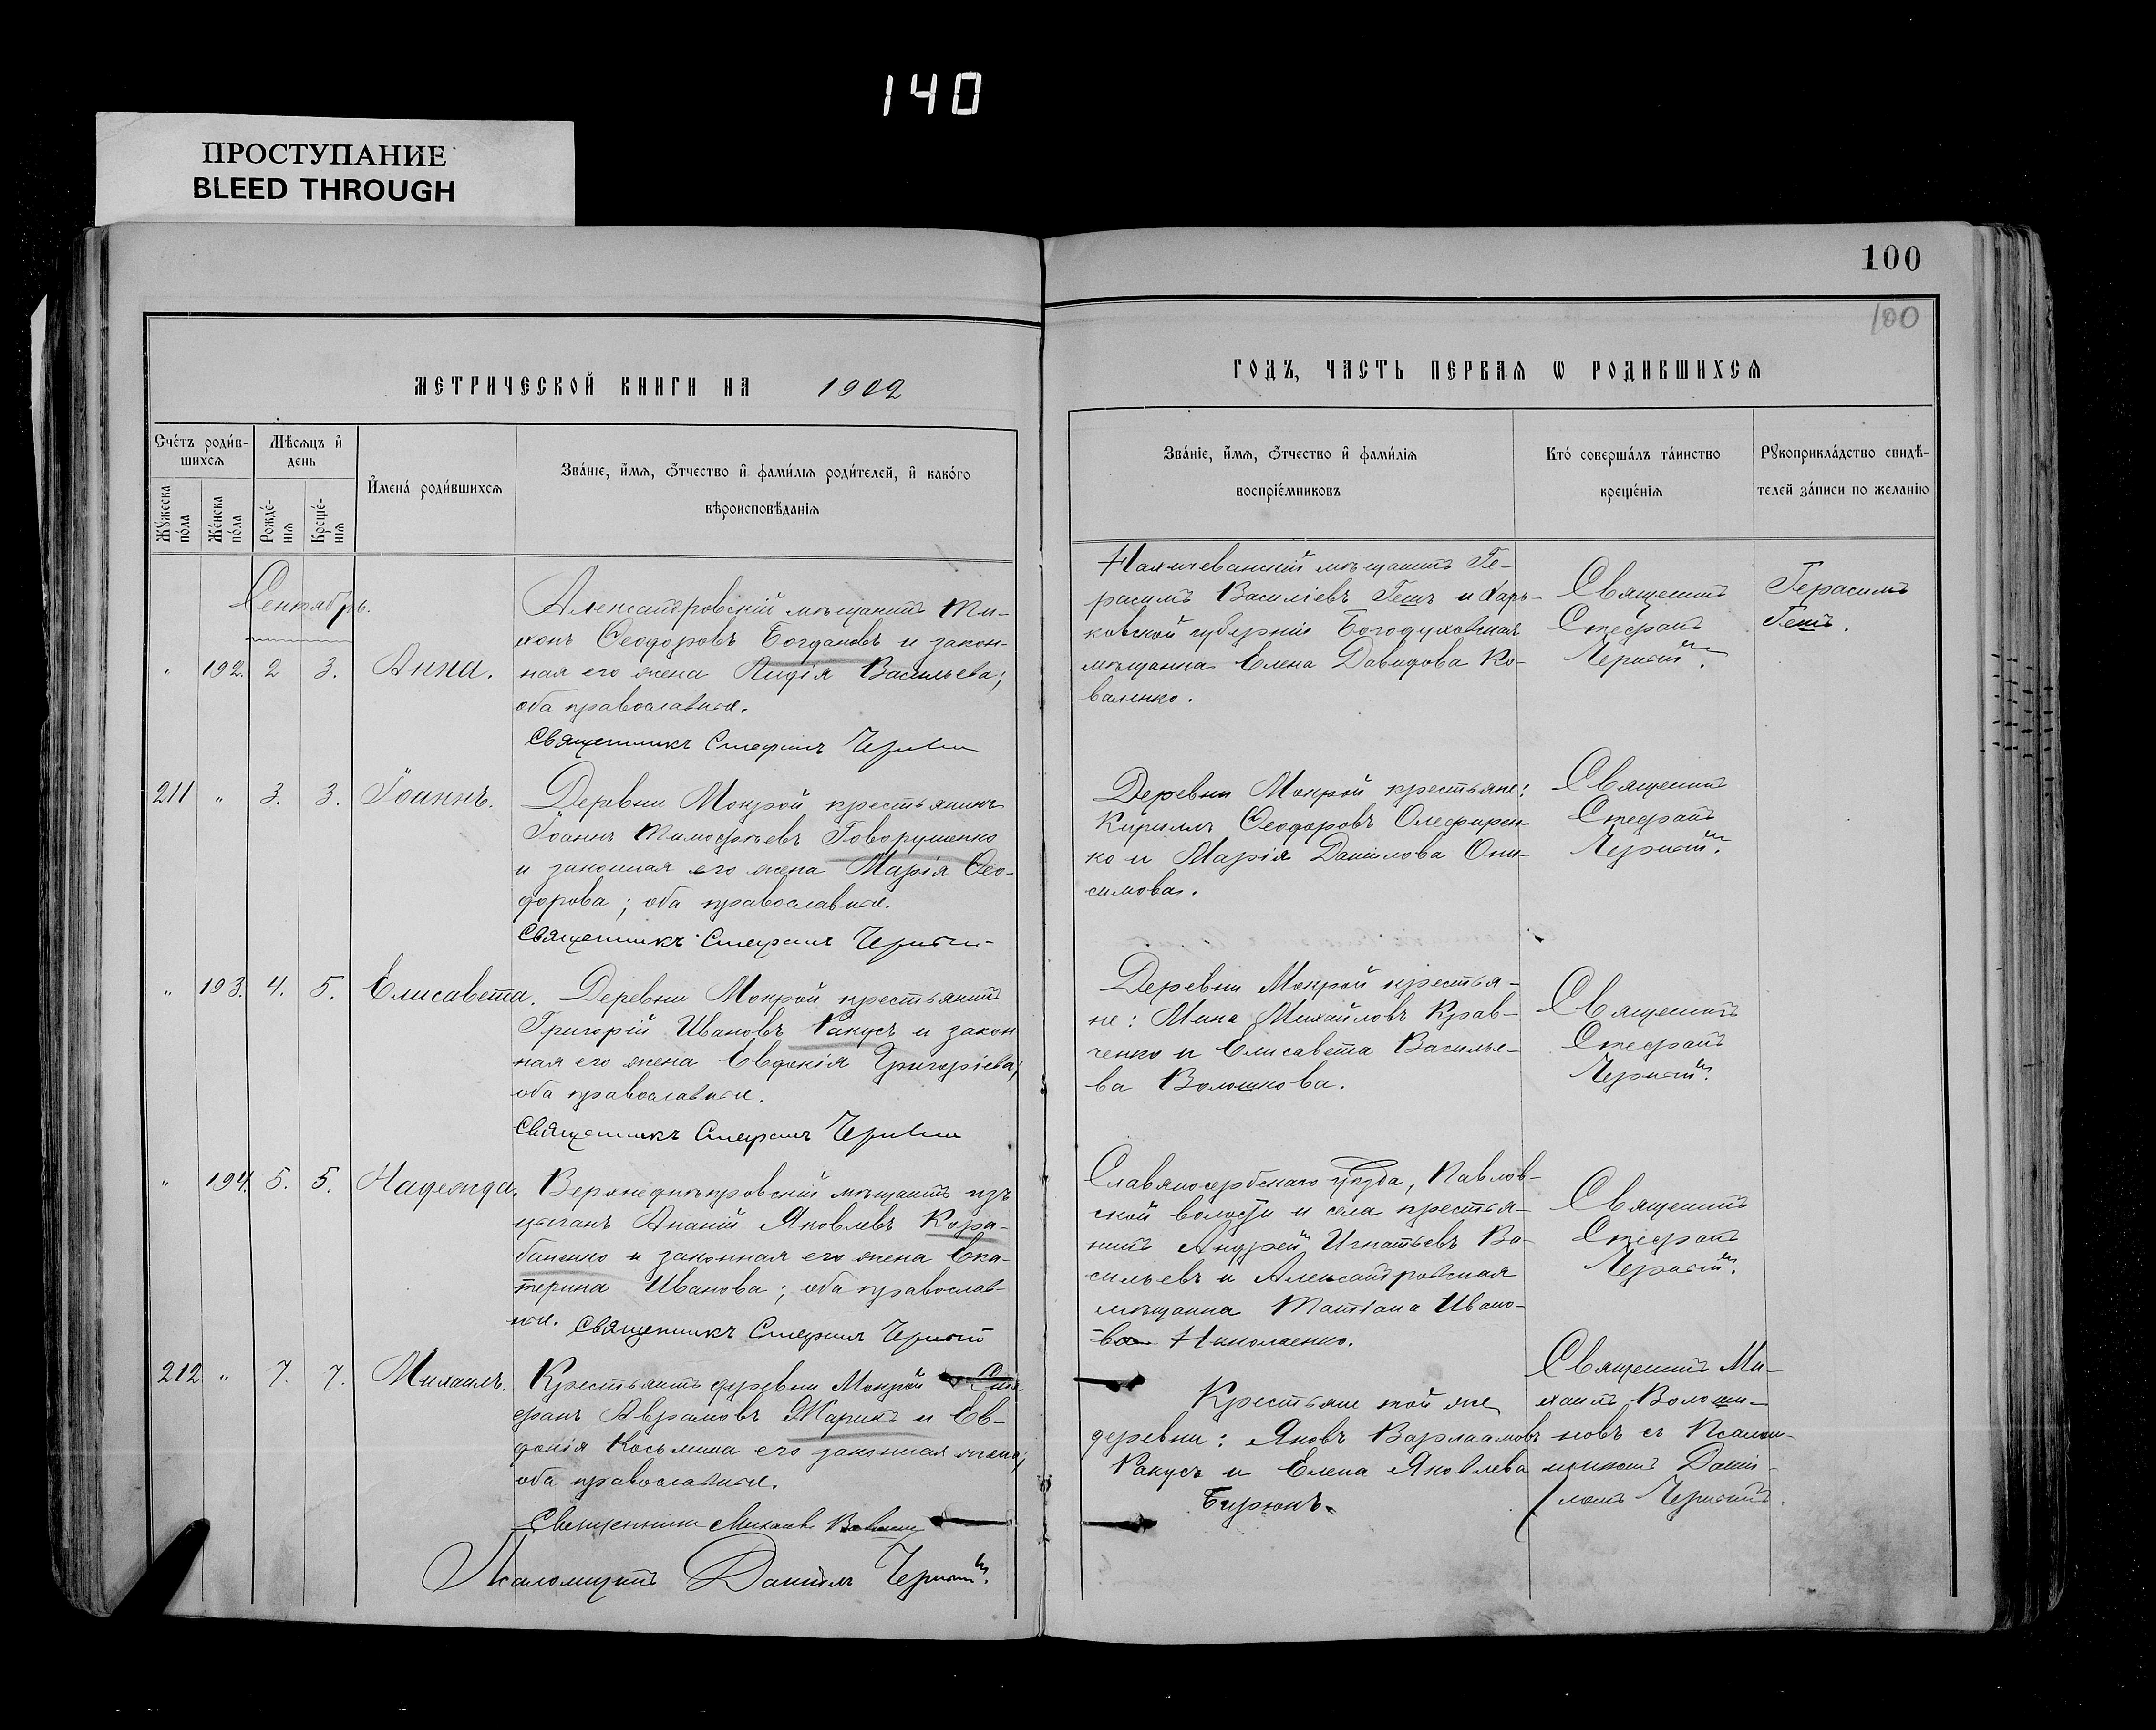 140
ПРОСТУПАНИЕ
BLEED THROUGH
100
100
МЕТРИЧЕСКОЙ КНИГИ НА 1902
ГОДЪ, ЧАСТЬ ПЕРВАЯ Ѡ РОДИВШИХСЯ
Счетъ родив-
шихся
Мѣсяцъ и
день
Имена родившихся
Званіе, имя, отчество и фамилія родителей, и какого
вѣроисповѣданія
Мужеска
пола
Женска
пола
Рожде-
нія
Креще-
нія
Званіе, имя, отчество и фамилія
воспріемниковъ
Кто совершалъ таинство
крещенія
Рукоприкладство свидѣ-
телей записи по желанію
Сентябрь.
" 192. 2 3. Анна.
Александровскій мѣщанинъ Ти-
хонъ Ѳеодоровъ Богдановъ и закон-
ная его жена Лидія Васильева;
оба православные.
Священникъ Стефанъ Черня
Нахичеванскій мѣщанинъ Ге-
расимъ Василіевъ Гешъ и Харь-
ковской губерніи Богодуховская
мѣщанка Елена Давидова Ко-
валенко.
Священникъ
Стефанъ
Чернявскій.
Герасимъ
Гешъ.
211 " 3. 3. Іоаннъ.
Деревни Мокрой крестьянинъ
Іоаннъ Тимофѣевъ Говорушенко
и законная его жена Марія Ѳео-
дорова; оба православные.
Священникъ Стефанъ
Деревни Мокрой крестьяне:
Кириллъ Ѳеодоровъ Олефирен-
ко и Марія Даніилова Они-
симова.
Священникъ
Стефанъ
" 193. 4. 5. Елисавета.
Деревни Мокрой крестьянинъ
Григорій Ивановъ Ракусъ и закон
ная его жена Евдокія Григоріева;
оба православные.
Священникъ Стефанъ
Деревни Мокрой крестья-
не: Мина Михайловъ Крав-
ченко и Елисавета Василье-
ва Волошкова.
Священникъ
Стефанъ
" 194. 5. 5. Надежда.
Верхнеднѣпровскій мѣщанинъ изъ
цыганъ Ананій Яковлевъ Кора-
баненко и законная его жена Ека-
терина Иванова; оба православ-
ные. Священникъ Стефанъ
Славяносербскаго уѣзда, Павлов-
ской волости и села крестья-
нинъ Андрей Игнатьевъ Ва-
сильевъ и Александровская
мѣщанка Татіана Ивано-
ва Николаенко.
Священникъ
Стефанъ
212 " 7. 7. Михаилъ.
Крестьянинъ деревни Мокрой Сте-
фанъ Аврамовъ Жарикъ и Ев-
докія Косьмина его законная жена;
оба православные.
Священникъ Михаилъ
Псаломщикъ Даніилъ
Крестьяне той же
деревни: Яковъ Варлаамовъ
Ракусъ и Елена Яковлева
Бирюкъ.
Священникъ Ми-
хаилъ Волоши-
новъ съ Псалом-
щикомъ Дані-
ломъ